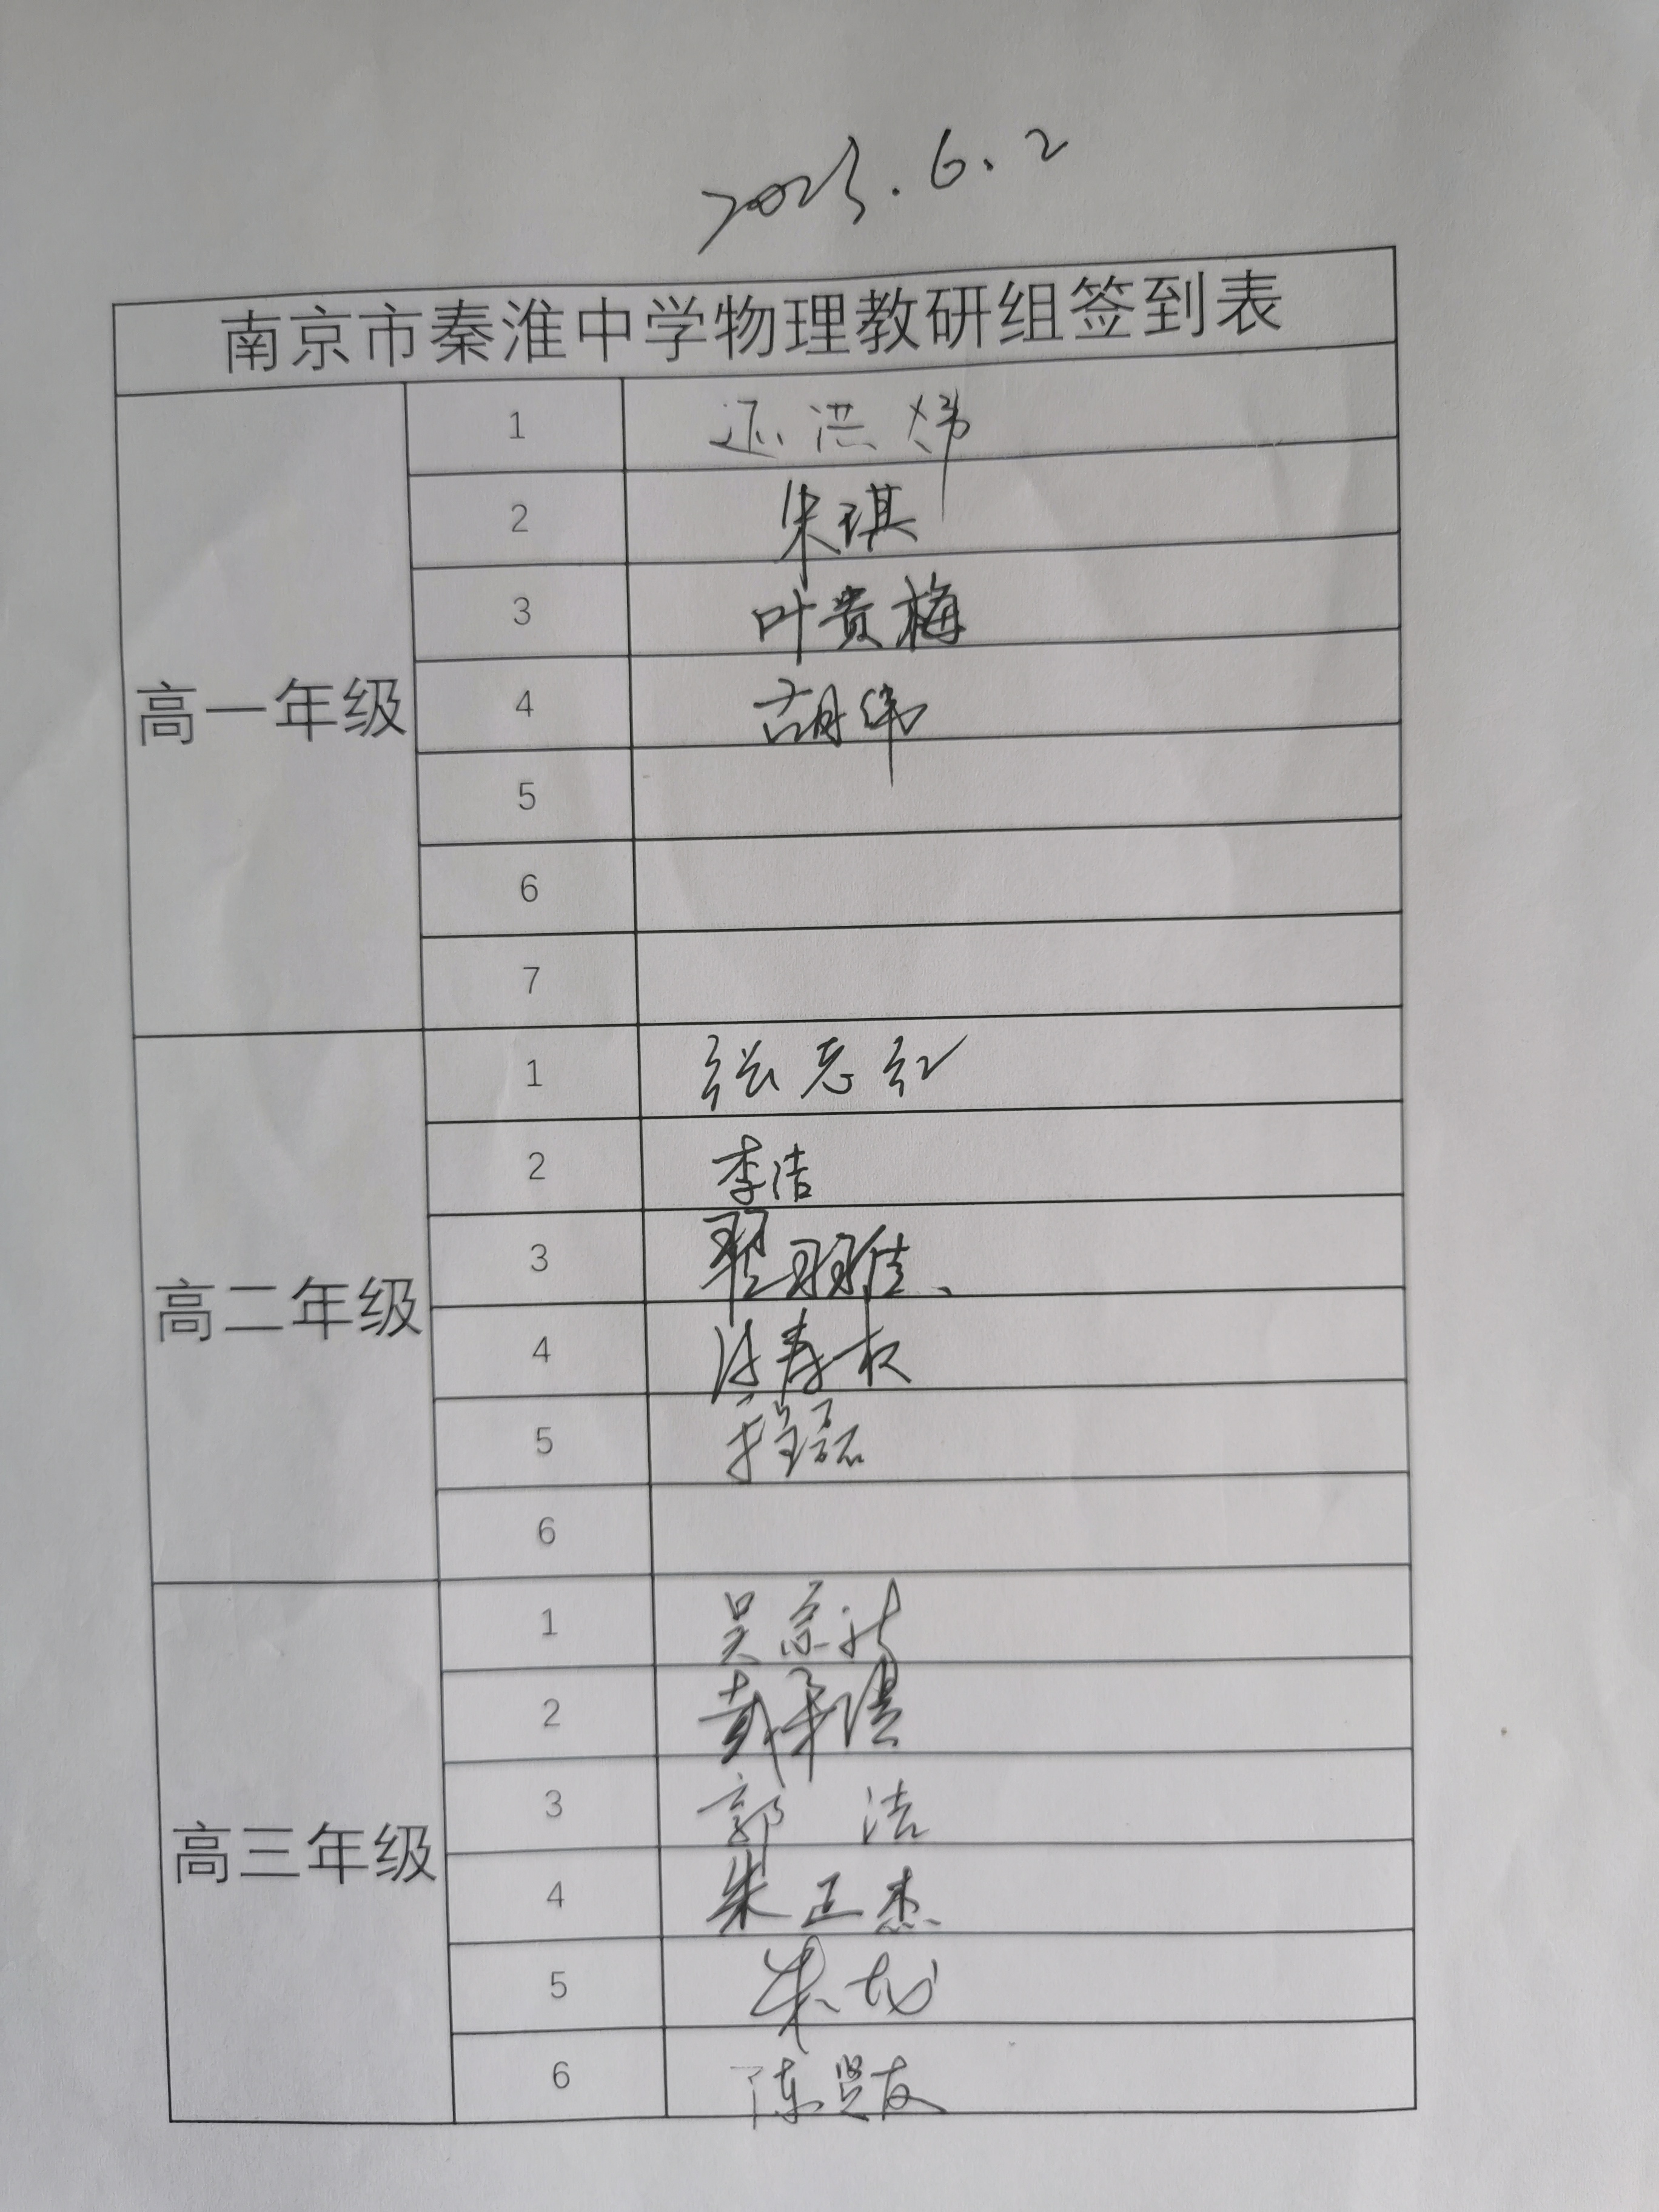 2023.6.2
南京市秦淮中学物理教研组签到表
高一年级
1 还洪炜
2 朱琪
3 叶贵梅
4 胡伟
5
6
7
高二年级
1 张志红
2 李洁
3 翟羽佳
4 春权
5 磊
6
高三年级
1 吴京
2 戴
3 郭洁
4 朱正杰
5 朱
6 陈贤友